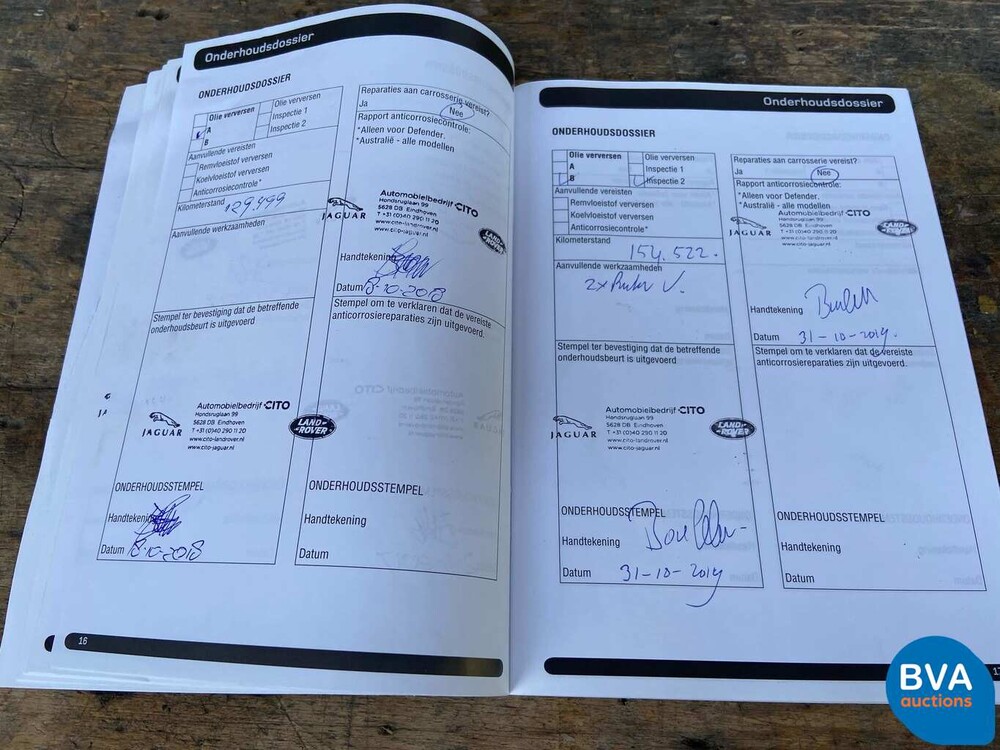 Onderhoudsdossier
ONDERHOUDSDOSSIER
Olie verversen
A
B
Olie verversen
Inspectie 1
Inspectie 2
Aanvullende vereisten
Remvloeistof verversen
Koelvloeistof verversen
Anticorrosiecontrole*
Kilometerstand 129.499
Aanvullende werkzaamheden
Stempel ter bevestiging dat de betreffende
onderhoudsbeurt is uitgevoerd
JAGUAR
Automobielbedrijf CITO
Hondsruglaan 99
5628 DB Eindhoven
T +31 (0)40 290 11 20
www.cito-landrover.nl
www.cito-jaguar.nl
LAND-
ROVER
ONDERHOUDSSTEMPEL
Handtekening
Datum 18-10-2018
Reparaties aan carrosserie vereist?
Ja Nee
Rapport anticorrosiecontrole:
*Alleen voor Defender,
*Australië - alle modellen
JAGUAR
Automobielbedrijf CITO
Hondsruglaan 99
5628 DB Eindhoven
T +31 (0)40 290 11 20
www.cito-landrover.nl
www.cito-jaguar.nl
LAND-
ROVER
Handtekening
Datum 18-10-2018
Stempel om te verklaren dat de vereiste
anticorrosiereparaties zijn uitgevoerd.
ONDERHOUDSSTEMPEL
Handtekening
Datum
16
Onderhoudsdossier
ONDERHOUDSDOSSIER
Olie verversen
A
B
Olie verversen
Inspectie 1
Inspectie 2
Aanvullende vereisten
Remvloeistof verversen
Koelvloeistof verversen
Anticorrosiecontrole*
Kilometerstand
154.522.
Aanvullende werkzaamheden
2x
Stempel ter bevestiging dat de betreffende
onderhoudsbeurt is uitgevoerd
JAGUAR
Automobielbedrijf CITO
Hondsruglaan 99
5628 DB Eindhoven
T +31 (0)40 290 11 20
www.cito-landrover.nl
www.cito-jaguar.nl
LAND-
ROVER
ONDERHOUDSSTEMPEL
Handtekening
Datum 31-10-2019
Reparaties aan carrosserie vereist?
Ja Nee
Rapport anticorrosiecontrole:
*Alleen voor Defender,
*Australië - alle modellen
JAGUAR
Automobielbedrijf CITO
Hondsruglaan 99
5628 DB Eindhoven
T +31 (0)40 290 11 20
www.cito-landrover.nl
www.cito-jaguar.nl
LAND-
ROVER
Handtekening
Datum 31-10-2019.
Stempel om te verklaren dat de vereiste
anticorrosiereparaties zijn uitgevoerd.
ONDERHOUDSSTEMPEL
Handtekening
Datum
BVA
auctions